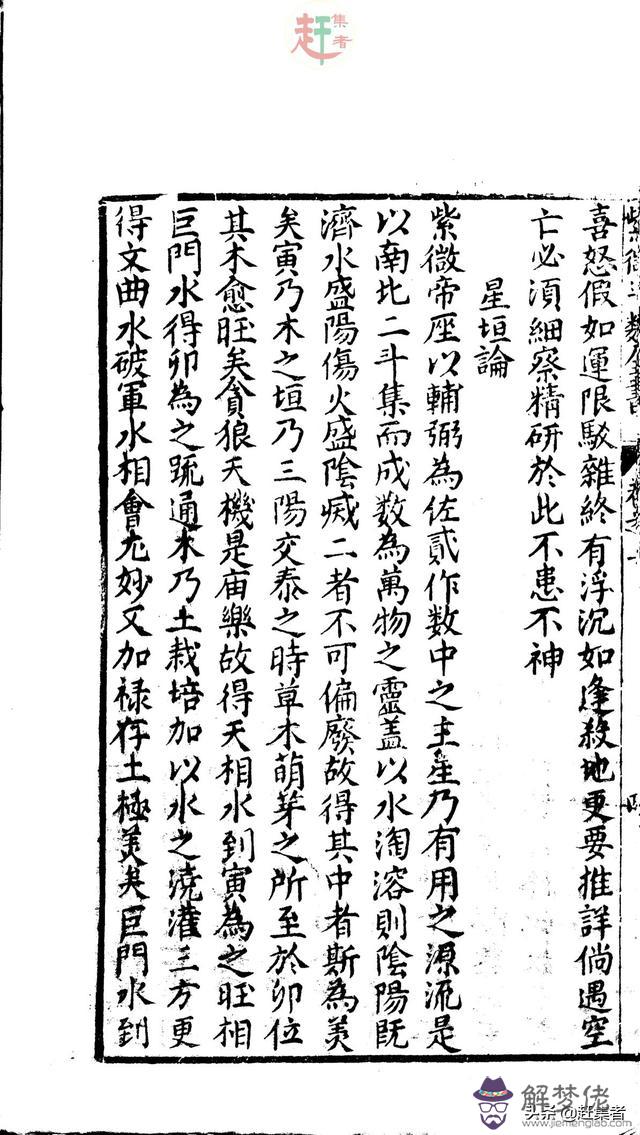 趕集者
喜怒假如運限駁雜終有浮沉如逢殺地更要推詳倘遇空
亡必須細察精研於此不患不神
星垣論
紫微帝座以輔弼為佐貳作数中之主星乃有用之源流是
以南北二斗集而成数為萬物之靈盖以水淘溶則陰陽既
濟水盛陽傷火盛陰烕二者不可偏廢故得其中者斯為美
矣寅乃木之垣乃三陽交泰之時草木萌芽之所至於卯位
其木愈旺矣貪狼天機是庙樂故得天相水到寅為之旺相
巨門水得卯為之疏通木乃土栽培加以水之澆灌三方更
得文曲水破軍水相會尤妙又加禄存土極美矣巨門水到
解梦佬
www.jiemenglab.com
头条@赶集者